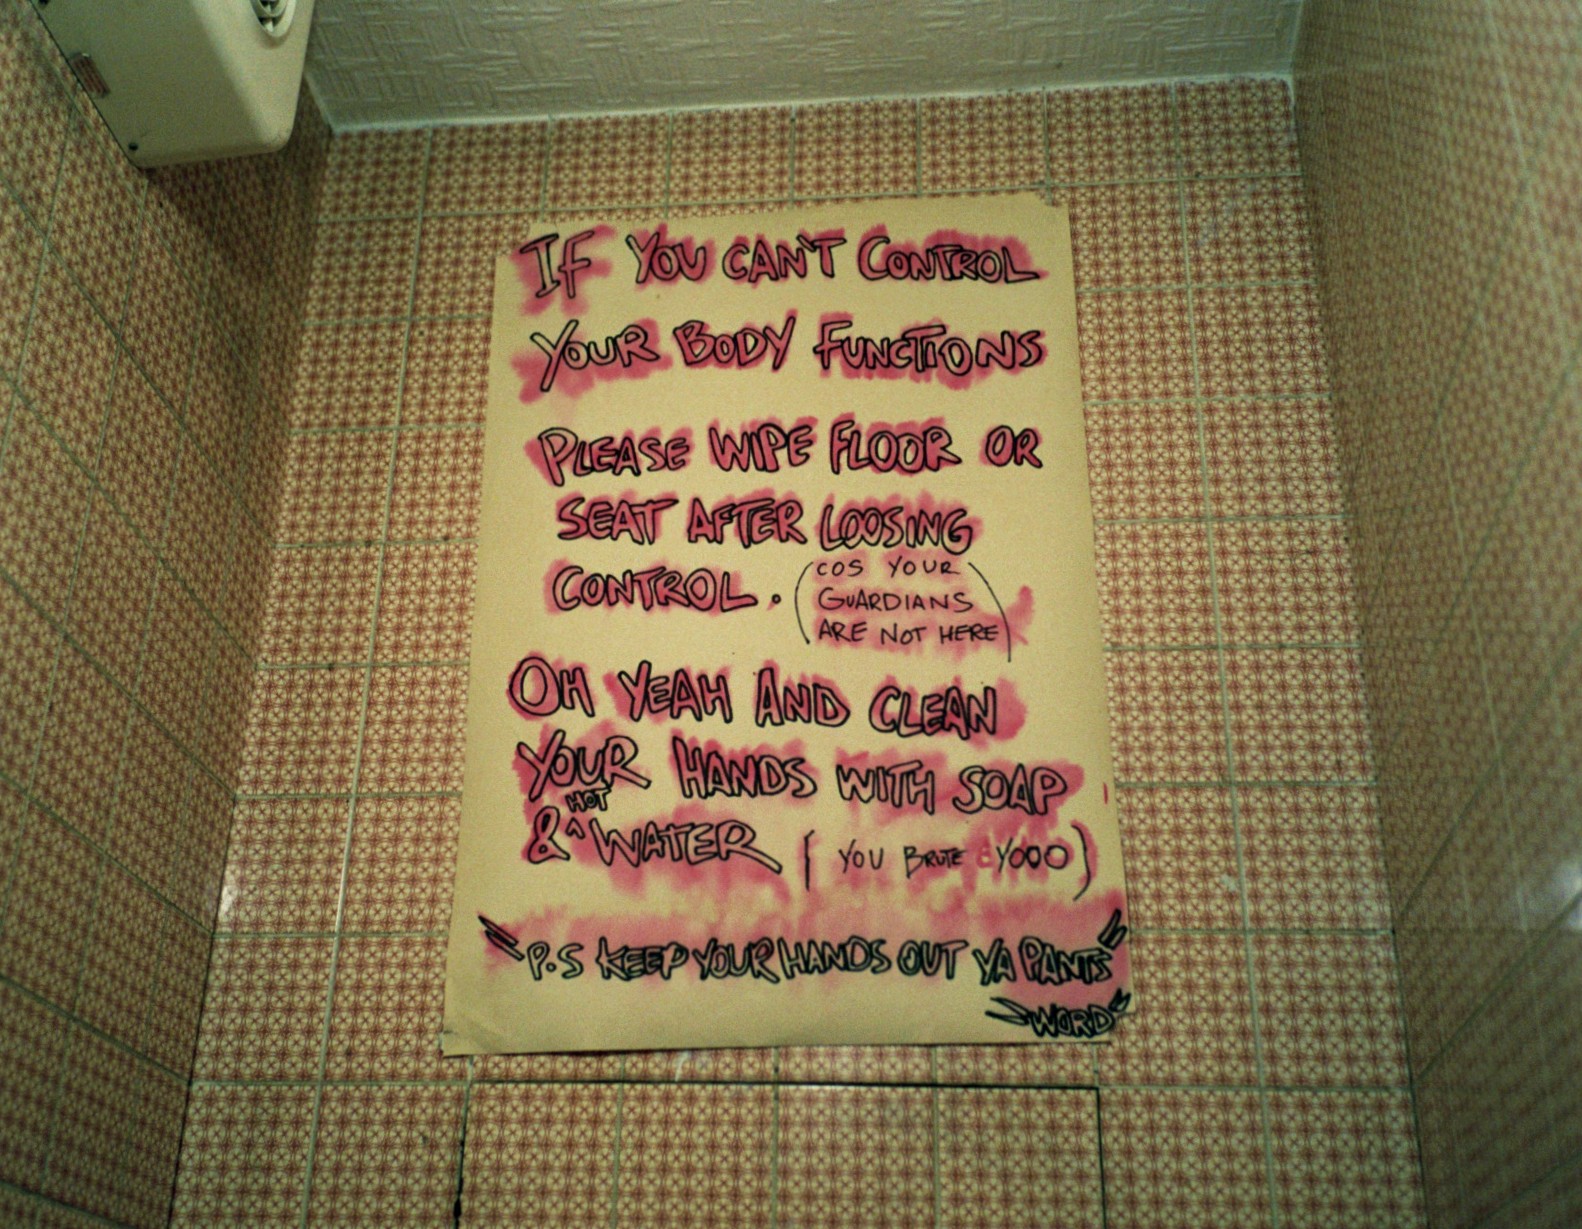 IF YOU CAN'T CONTROL
YOUR BODY FUNCTIONS
PLEASE WIPE FLOOR OR
SEAT AFTER LOOSING
CONTROL. (COS YOUR
GUARDIANS
ARE NOT HERE)
OH YEAH AND CLEAN
YOUR HANDS WITH SOAP
& ^HOT WATER (YOU BRUTE YOOO)
"P.S KEEP YOUR HANDS OUT YA PANTS"
"WORD"